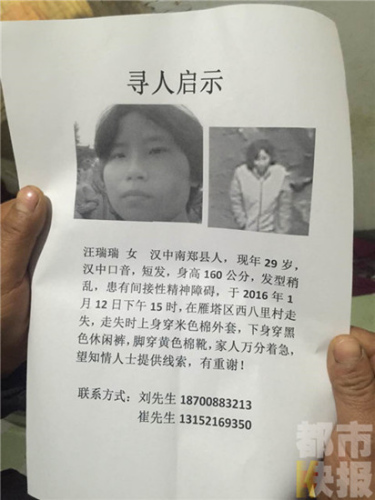 寻人启示
汪瑞瑞 女 汉中南郑县人，现年 29 岁，
汉中口音，短发，身高 160 公分，发型稍
乱，患有间接性精神障碍，于 2016 年 1
月 12 日下午 15 时，在雁塔区西八里村走
失，走失时上身穿米色棉外套，下身穿黑
色休闲裤，脚穿黄色棉靴，家人万分着急，
望知情人士提供线索，有重谢！
联系方式：刘先生 18700883213
崔先生 13152169350
都市
快报